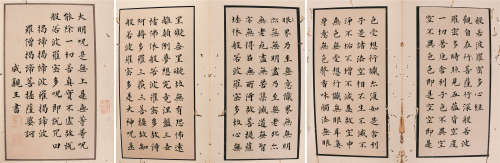 觀自在菩薩行深般若波
羅蜜多時照見五蘊皆空度
一切苦厄舍利子色不異空
空不異色色即是空空即是
色受想行識亦復如是舍利
子是諸法空相不生不滅不
垢不淨不增不減是故空中
無色無受想行識無眼耳鼻
舌身意無色聲香味觸法無
眼界乃至無意識界無無明
亦無無明盡乃至無老死亦
無老死盡無苦集滅道無智
亦無得以無所得故菩提薩
埵依般若波羅蜜多故心無
罣礙無罣礙故無有恐怖遠
離顛倒夢想究竟涅槃三世
諸佛依般若波羅蜜多故得
阿耨多羅三藐三菩提故知
般若波羅蜜多是大神咒是
大明咒是無上咒是無等等咒
能除一切苦真實不虛故說
般若波羅蜜多咒即說咒曰
揭諦揭諦波羅揭諦波
羅僧揭諦菩提薩婆訶
成親王書